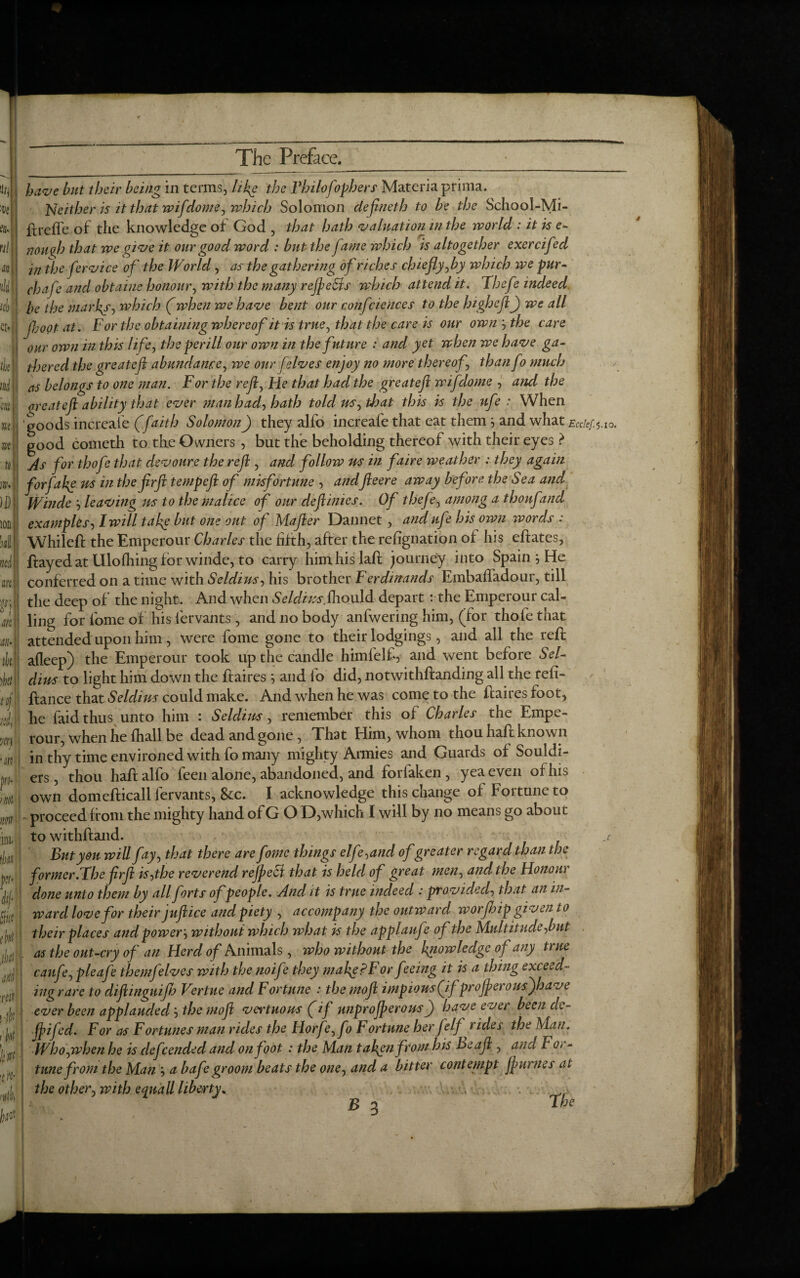 The Preface.
have but their being in terms, like the Philoſophers Materia prima.
Neither is it that wiſdome, which Solomon defineth to be the School-Mi-
ſtreſſe of the knowledge of God, that hath valuation in the world : it is e-
nough that we give it our good word : but the ſame which is altogether exerciſed
in the ſervice of the World, as the gathering of riches chiefly,by which we pur-
chaſe and obtaine honour, with the many reſpects which attend it. Theſe indeed
be the marks, which (when we have bent our conſciences to the higheſt) we all
ſhoot at. For the obtaining whereof it is true, that the care is our own ; the care
our own in this life, the perill our own in the future : and yet when we have ga-
thered the greateſt abundance, we our ſelves enjoy no more thereof, than ſo much
as belongs to one man. For the reſt, He that had the greateſt wiſdome , and the
greateſt ability that ever man had, hath told us, that this is the uſe : When
goods increaſe (ſaith Solomon) they alſo increaſe that eat them ; and what Eccleſ.5.10.
good cometh to the Owners , but the beholding thereof with their eyes ?
As for thoſe that devoure the reſt , and follow us in faire weather : they again
forſake us in the firſt tempeſt of misfortune , and ſteere away before the Sea and
Winde ; leaving us to the malice of our deſtinies. Of theſe, among a thouſand
examples, I will take but one out of Maſter Dannet , and uſe his own words :
Whileſt the Emperour Charles the fifth, after the reſignation of his eſtates,
ſtayed at Uloſhing for winde, to carry him his laſt journey into Spain ; He
conferred on a time with Seldius, his brother Ferdinands Embaſſadour, till
the deep of the night. And when Seldius ſhould depart : the Emperour cal-
ling for ſome of his ſervants , and no body anſwering him, (for thoſe that
attended upon him , were ſome gone to their lodgings , and all the reſt
aſleep) the Emperour took up the candle himſelf, and went before Sel-
dius to light him down the ſtaires ; and ſo did, notwithſtanding all the reſi-
ſtance that Seldius could make. And when he was come to the ſtaires foot,
he ſaid thus unto him : Seldius , remember this of Charles the Empe-
rour, when he ſhall be dead and gone , That Him, whom thou haſt known
in thy time environed with ſo many mighty Armies and Guards of Souldi-
ers , thou haſt alſo ſeen alone, abandoned, and forſaken , yea even of his
own domeſticall ſervants, &c. I acknowledge this change of Fortune to
proceed from the mighty hand of G O D,which I will by no means go about
to withſtand.
But you will ſay, that there are ſome things elſe,and of greater regard than the
former.The firſt is,the reverend reſpect that is held of great men, and the Honour
done unto them by all ſorts of people. And it is true indeed : provided, that an in-
ward love for their juſtice and piety , accompany the outward worſhip given to
their places and power; without which what is the applauſe of the Multitude,but
as the out-cry of an Herd of Animals , who without the knowledge of any true
cauſe, pleaſe themſelves with the noiſe they make?For ſeeing it is a thing exceed-
ing rare to diſtinguiſh Vertue and Fortune : the moſt impious(if proſperous)have
ever been applauded ; the moſt vertuous (if unproſperous) have ever been de-
ſpiſed. For as Fortunes man rides the Horſe, ſo Fortune her ſelf rides the Man.
Who,when he is deſcended and on foot : the Man taken from his Beaſt , and For-
tune from the Man ; a baſe groom beats the one, and a bitter contempt ſpurnes at
the other, with equall liberty.
B 3 The